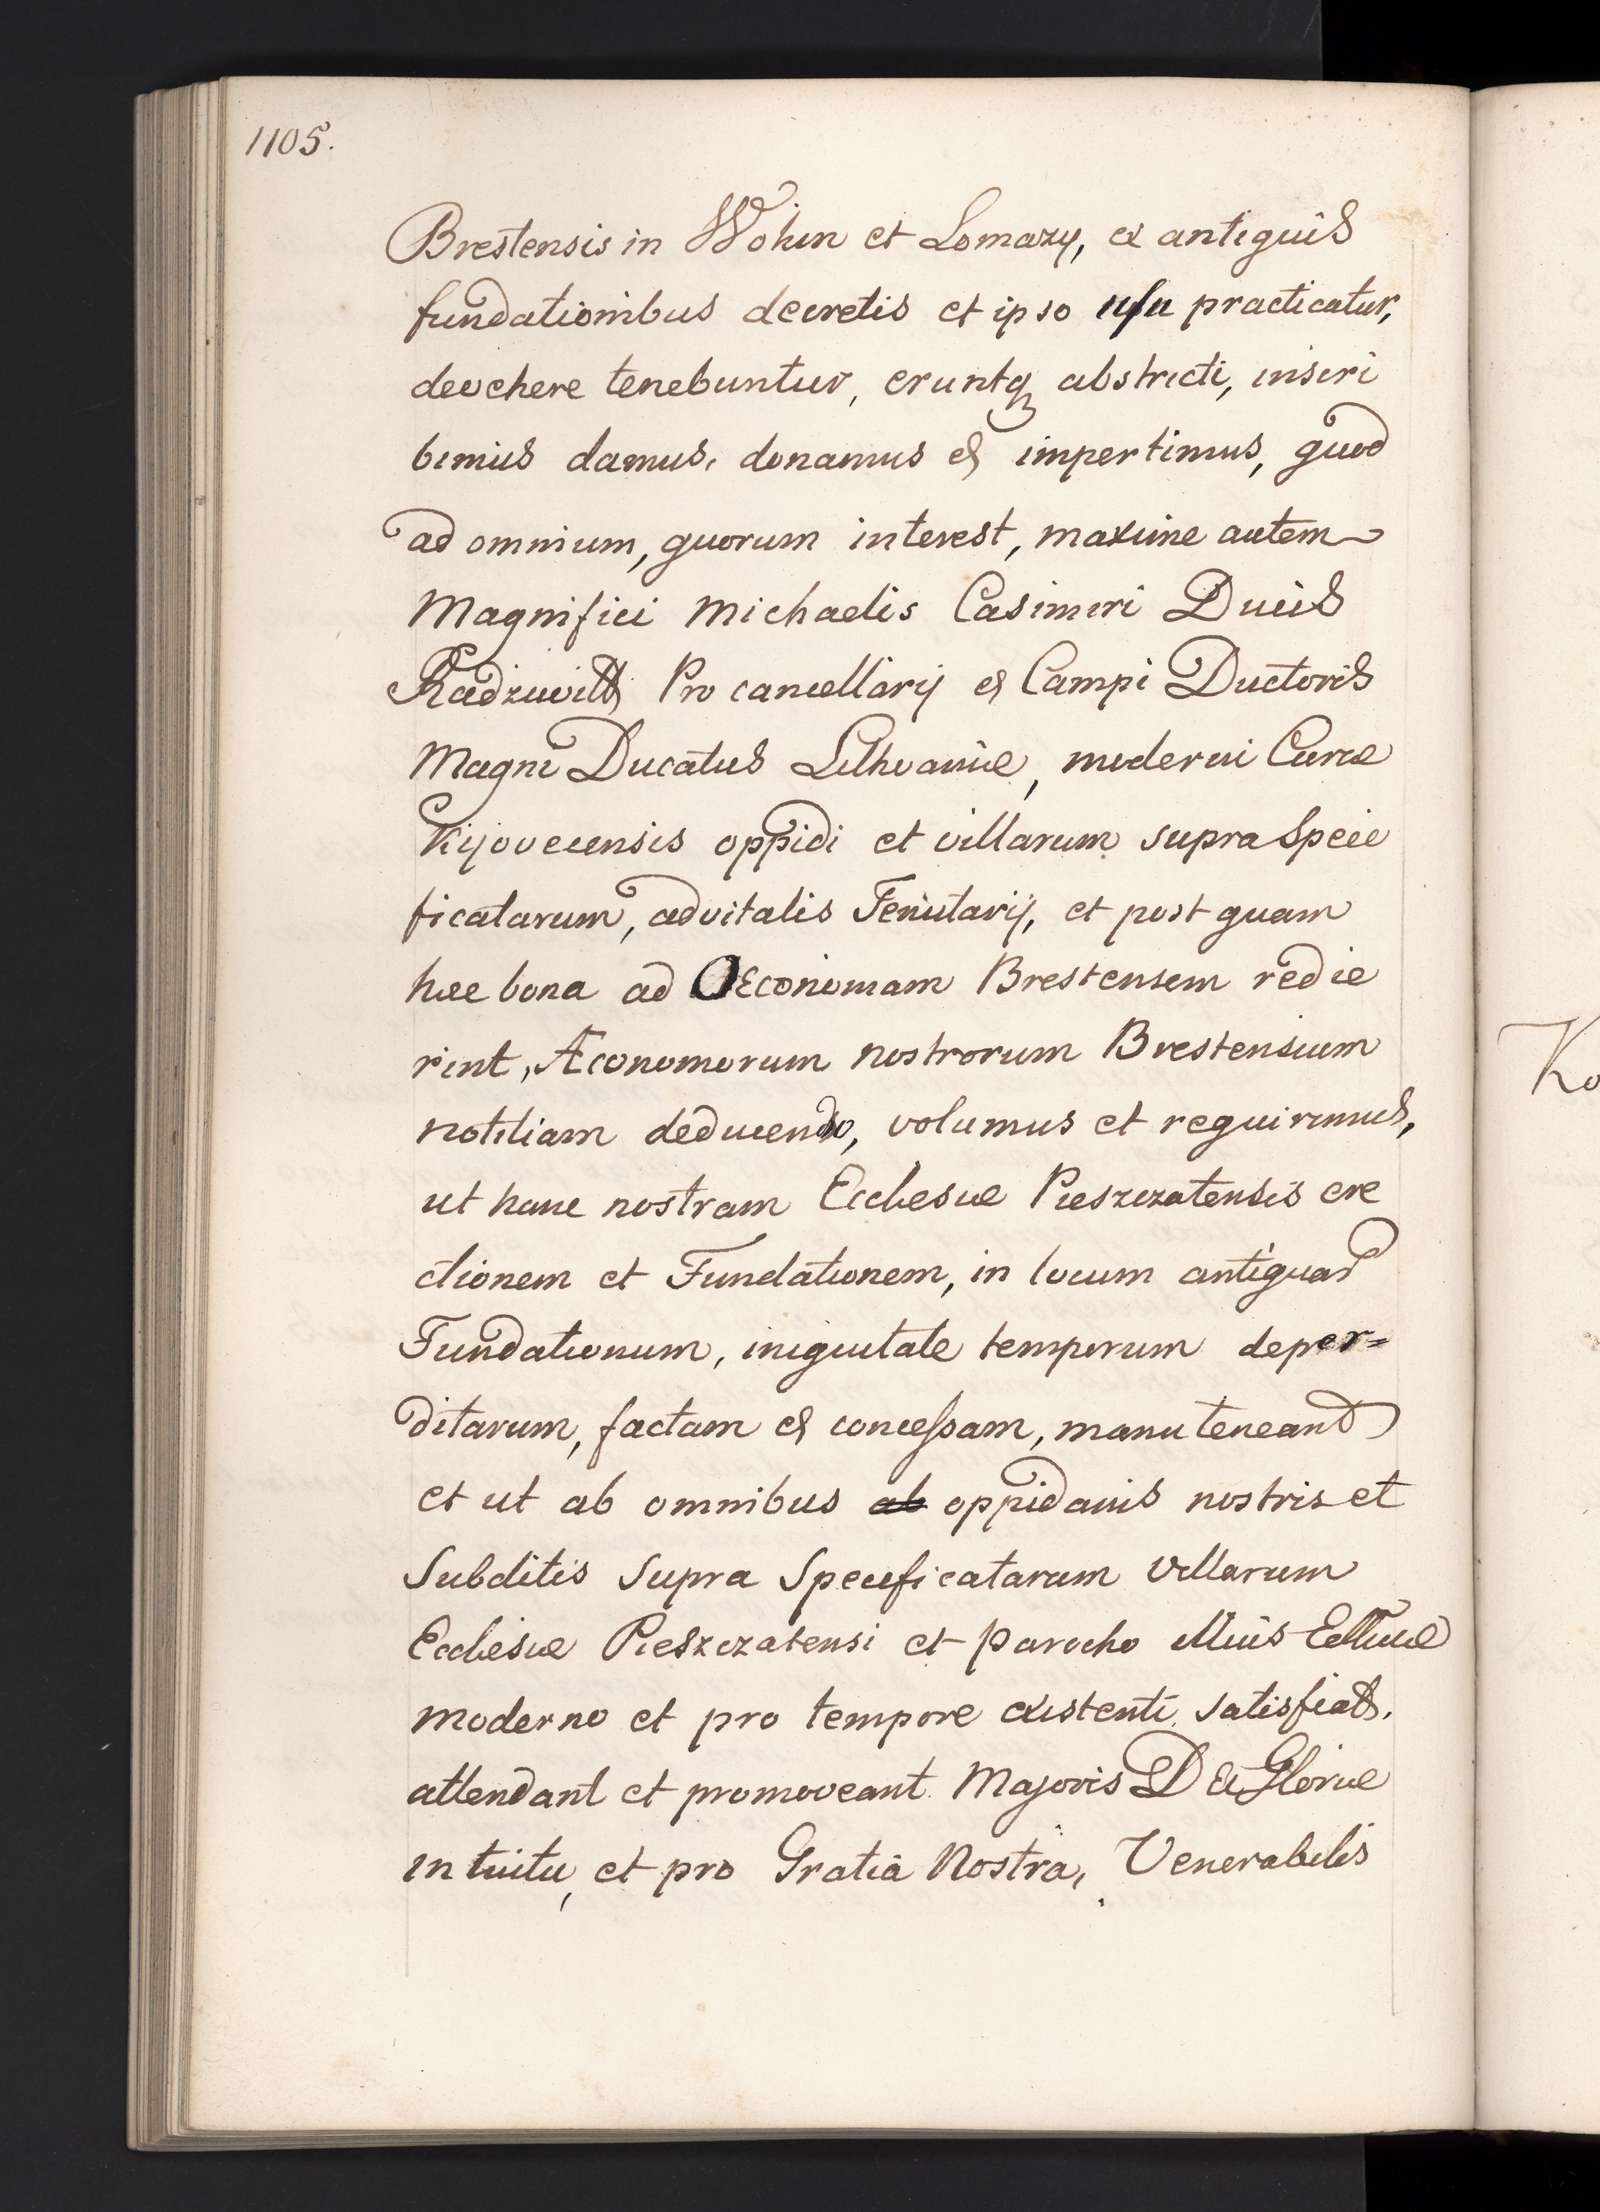 1105.
Brestensis in Wohin et Lomazy, ex antiquis
fundationibus decretis et ipso usu practicatur,
devehere tenebuntur, eruntq abstricti, inscri
bimus damus, donamus et impertimus, quod
ad omnium, quorum interest, maxime autem
Magnifici Michaelis Casimiri Ducis
Radziwill Procancellarij et Campi Ductoris
Magni Ducatus Lithvaniæ, moderni Curæ
Kijovecensis oppidi et villarum supra Speci
ficatarum, advitalis Tenutarij, et post quam
hæc bona ad OEconomam Brestensem redie
rint, Æconomorum nostrorum Brestensium
notitiam deducendo, volumus et requirimus,
ut hanc nostram Ecclesiæ Piesczatensis ere
ctionem et Fundationem, in locum antiquar
Fundationum, iniquitate temporum deper=
ditarum, factam et concessam, manuteneant
et ut ab omnibus ab oppidanis nostris et
Subditis Supra Specificatarum Villarum
Ecclesiæ Pieszczatensi et Parocho illius Ecclliæ
moderno et pro tempore existenti satisfiat,
attendant et promoveant Majoris Dei Gloriæ
intuitu, et pro Gratia Nostra, Venerabilis
Ko